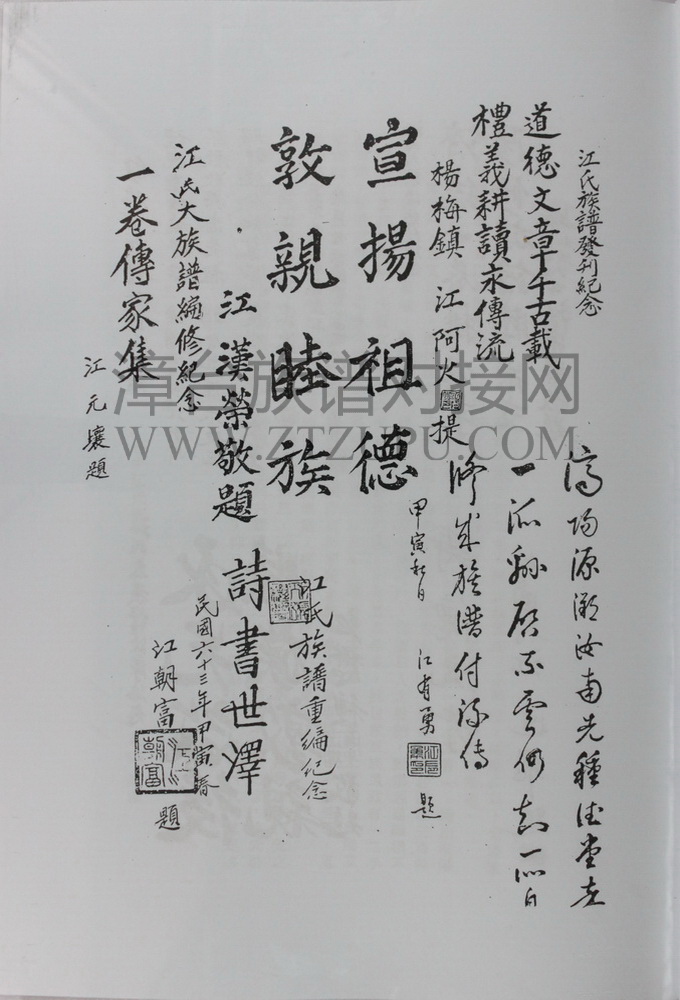 江氏族譜發刊紀念
道德文章千古載
禮義耕讀永傳流
楊梅鎮 江阿火 提
宣揚祖德
敦親睦族
江漢榮敬題
江氏大族譜編修紀念
一卷傳家集
江元壤題
源溯汝南先種德堂
一派
修成族譜付流傳
甲寅秋日 江有勇 題
江氏族譜重編紀念
詩書世澤
民國六十三年甲寅春
江朝富 題
漳台族谱对接网
WWW.ZTZUPU.COM